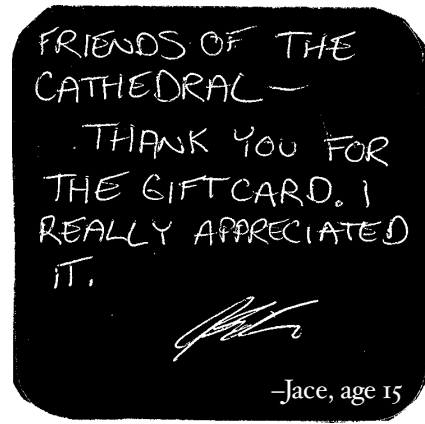 FRIENDS OF THE
CATHEDRAL—
THANK YOU FOR
THE GIFTCARD. I
REALLY APPRECIATED
IT.
–Jace, age 15